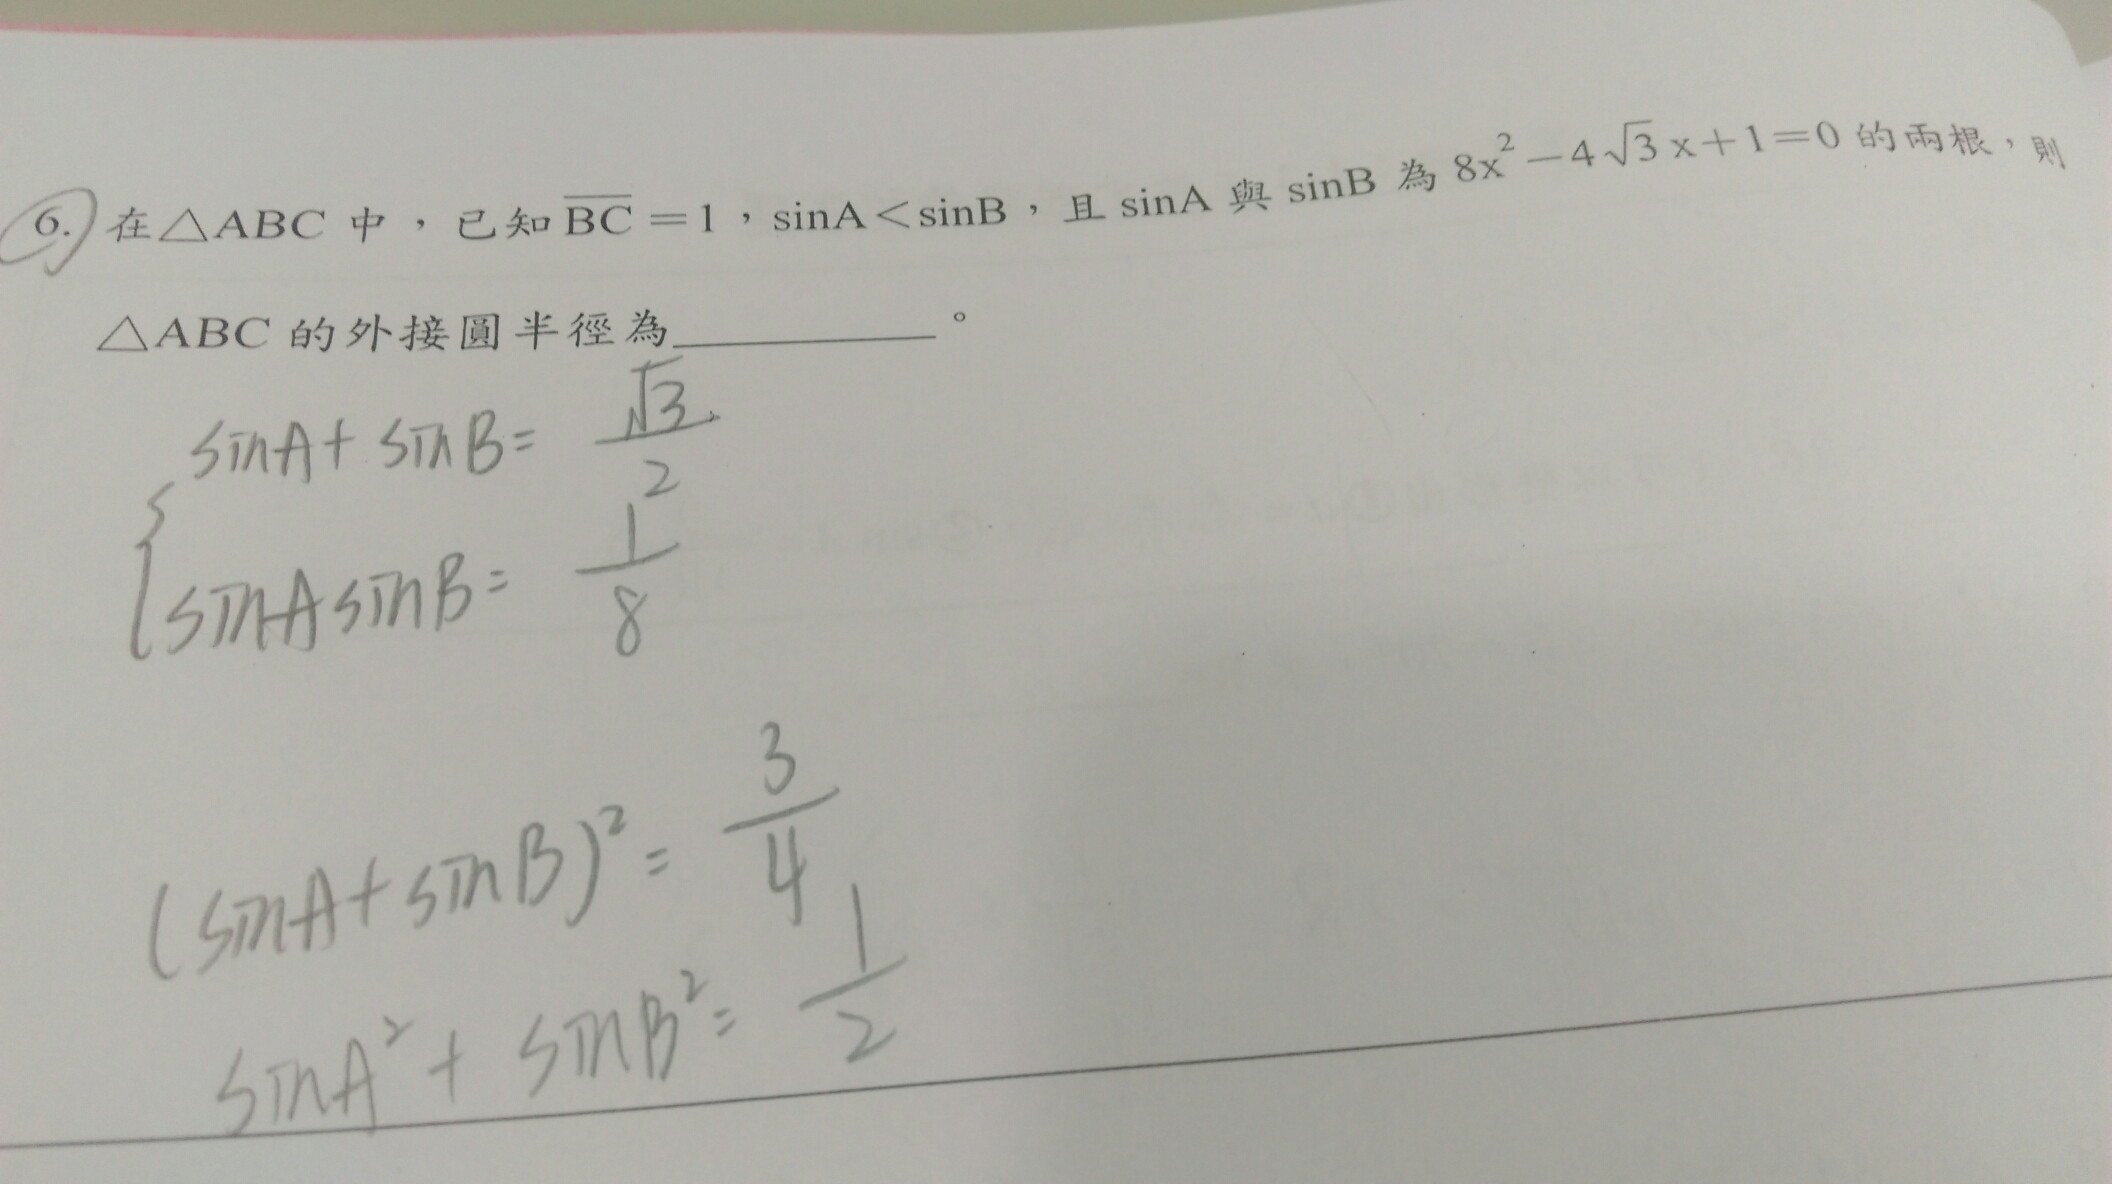 6. 在△ABC 中，已知 \overline{BC}＝1，sinA＜sinB，且 sinA 與 sinB 為 8x²－4√3x＋1＝0 的兩根，則
△ABC 的外接圓半徑為＿＿＿＿＿。
sinA+ sinB= √3/2
sinAsinB= 1/8
(sinA+sinB)²= 3/4
sinA²+ sinB²= 1/2